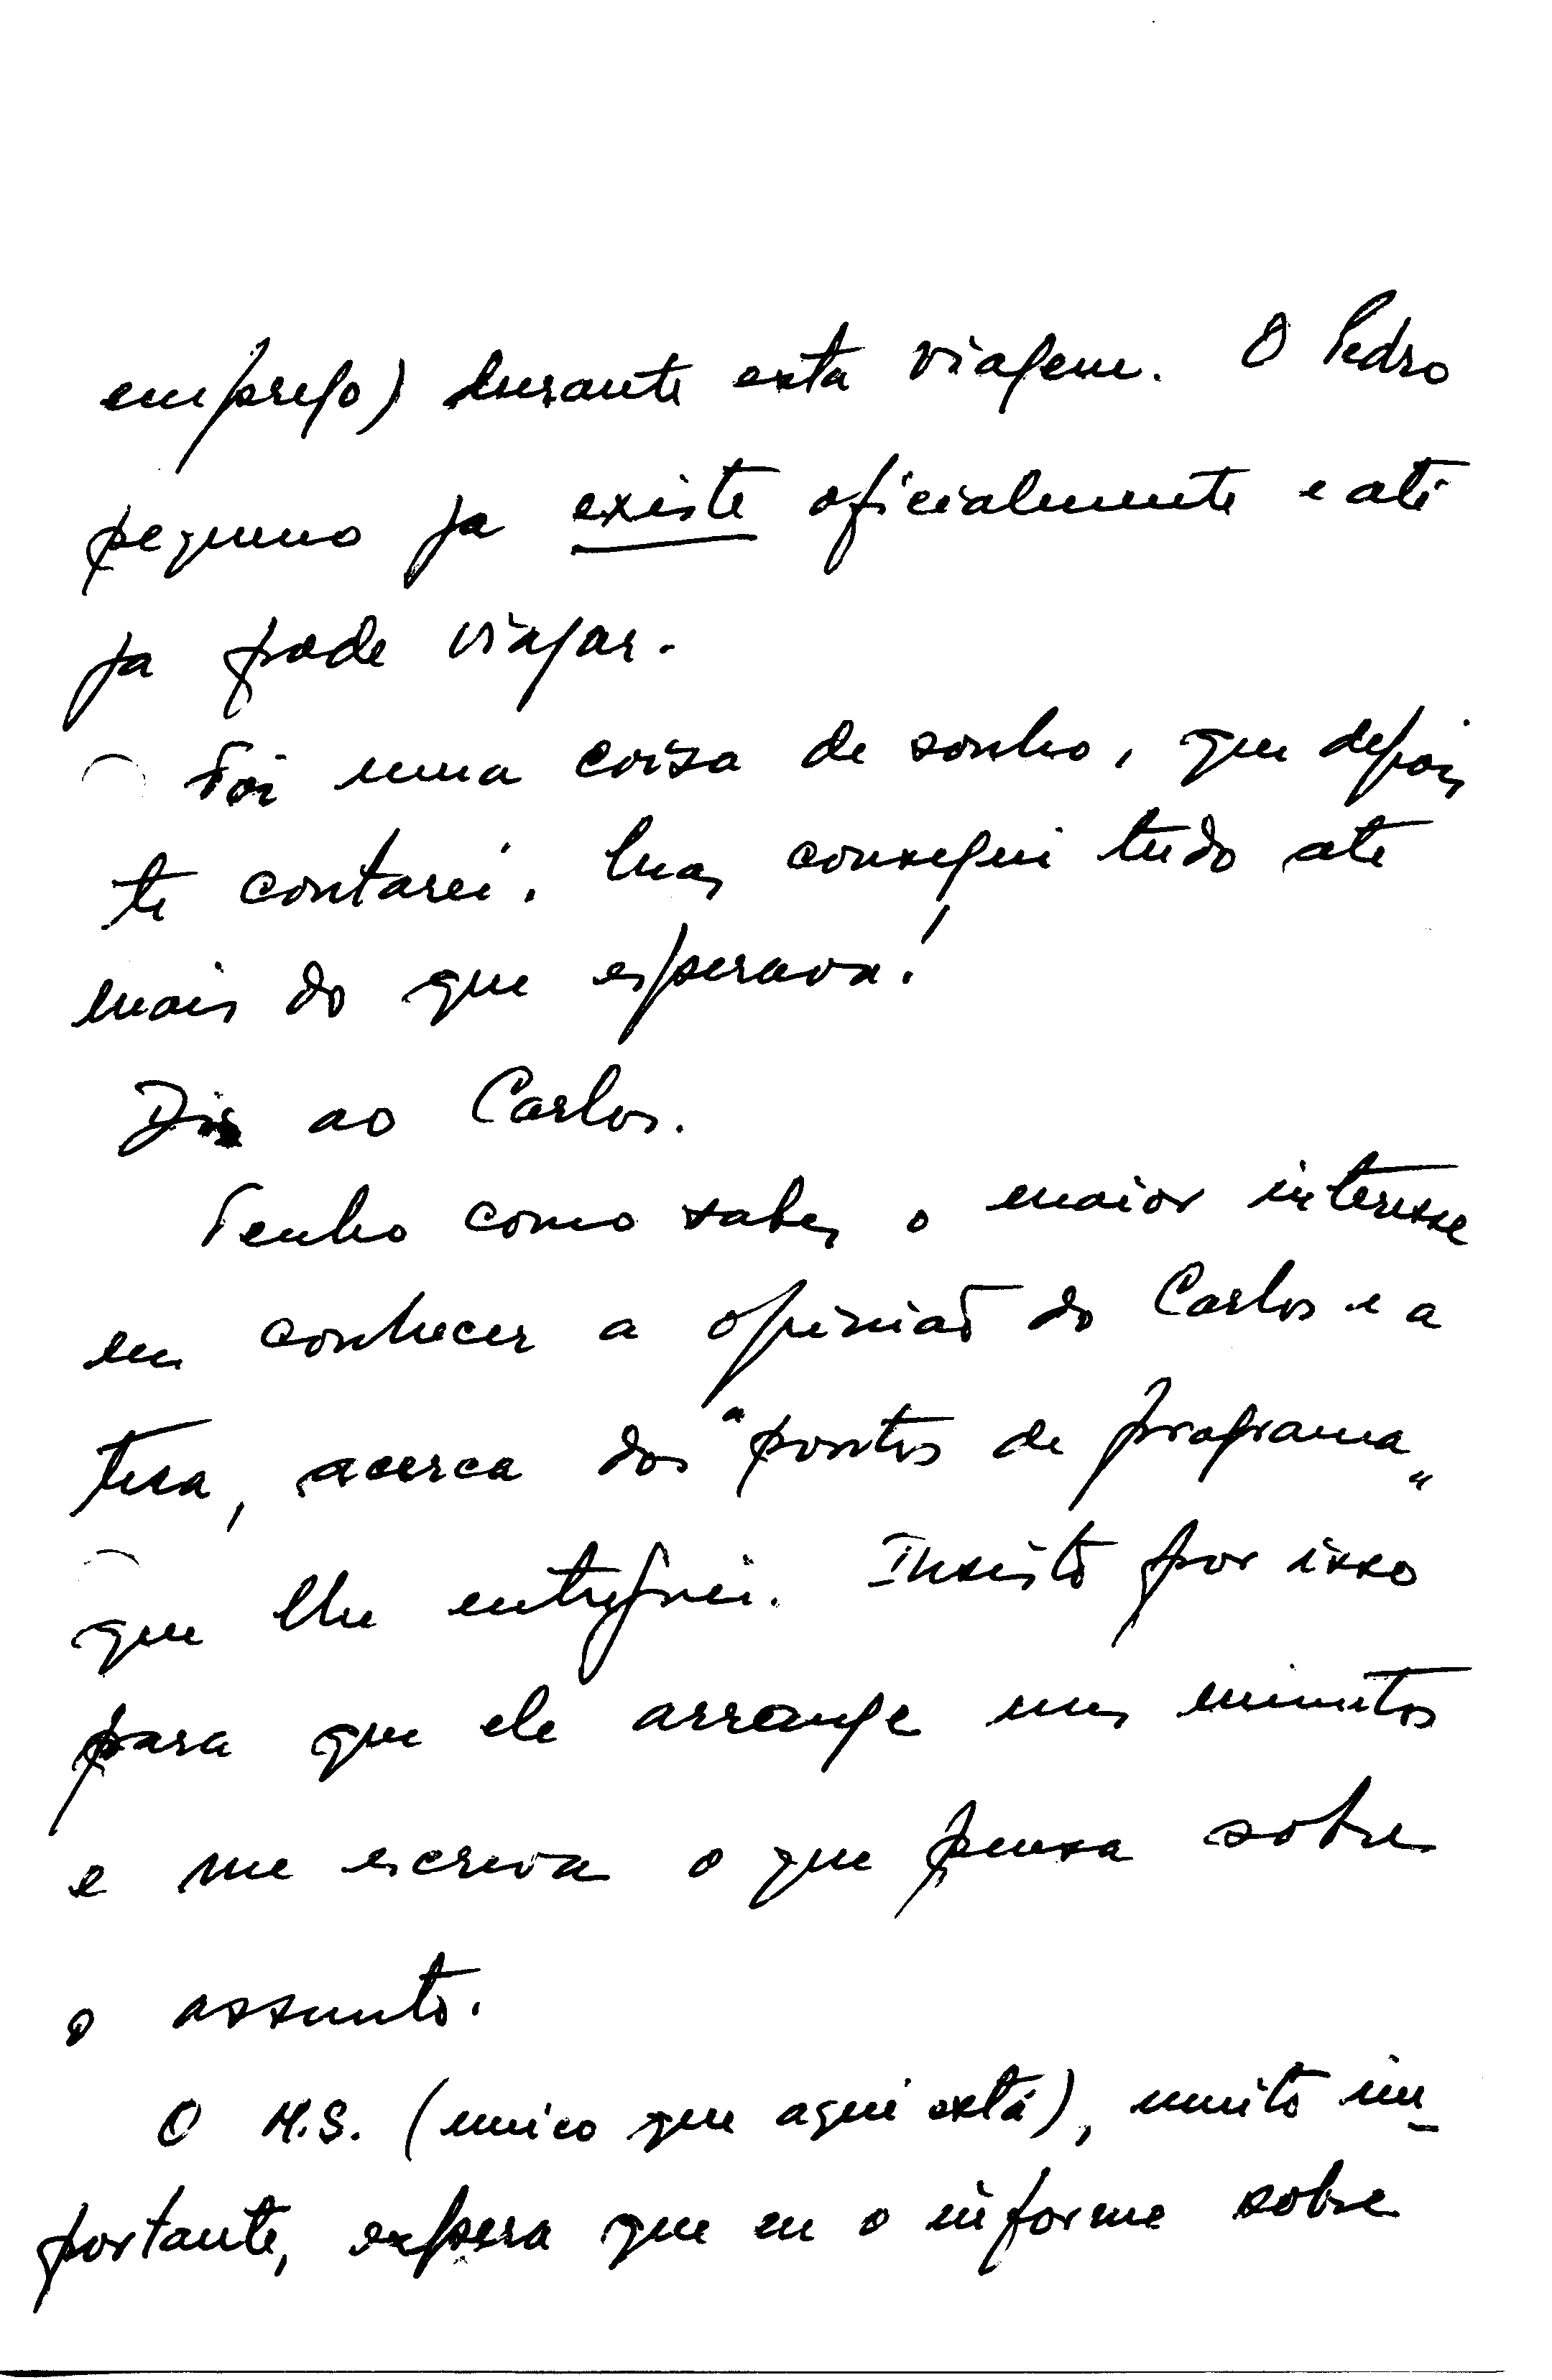 emprego) durante esta viagem. O Pedro
pequeno ja existe oficialmente e até
ja pode viajar.
Foi uma coisa de sonho, que depois
te contarei. Mas consegui tudo até
mais do que esperava!
Diz ao Carlos.
Tenho como sabes o maior interesse
em conhecer a opinião do Carlos e a
tua, acerca dos "pontos de programa"
que lhe entreguei. Insisto por isso
para que ele arranje uns minutos
e me escreva o que pensa sobre
o assunto.
O M.S. (unico que aqui está), muito im-
portante, espera que eu o informe sobre